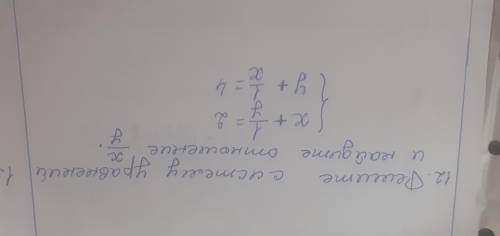 12. Решите систему уравнений
и найдите отношение x/y.
{ x + 1/y = 2
{ y + 1/x = 4